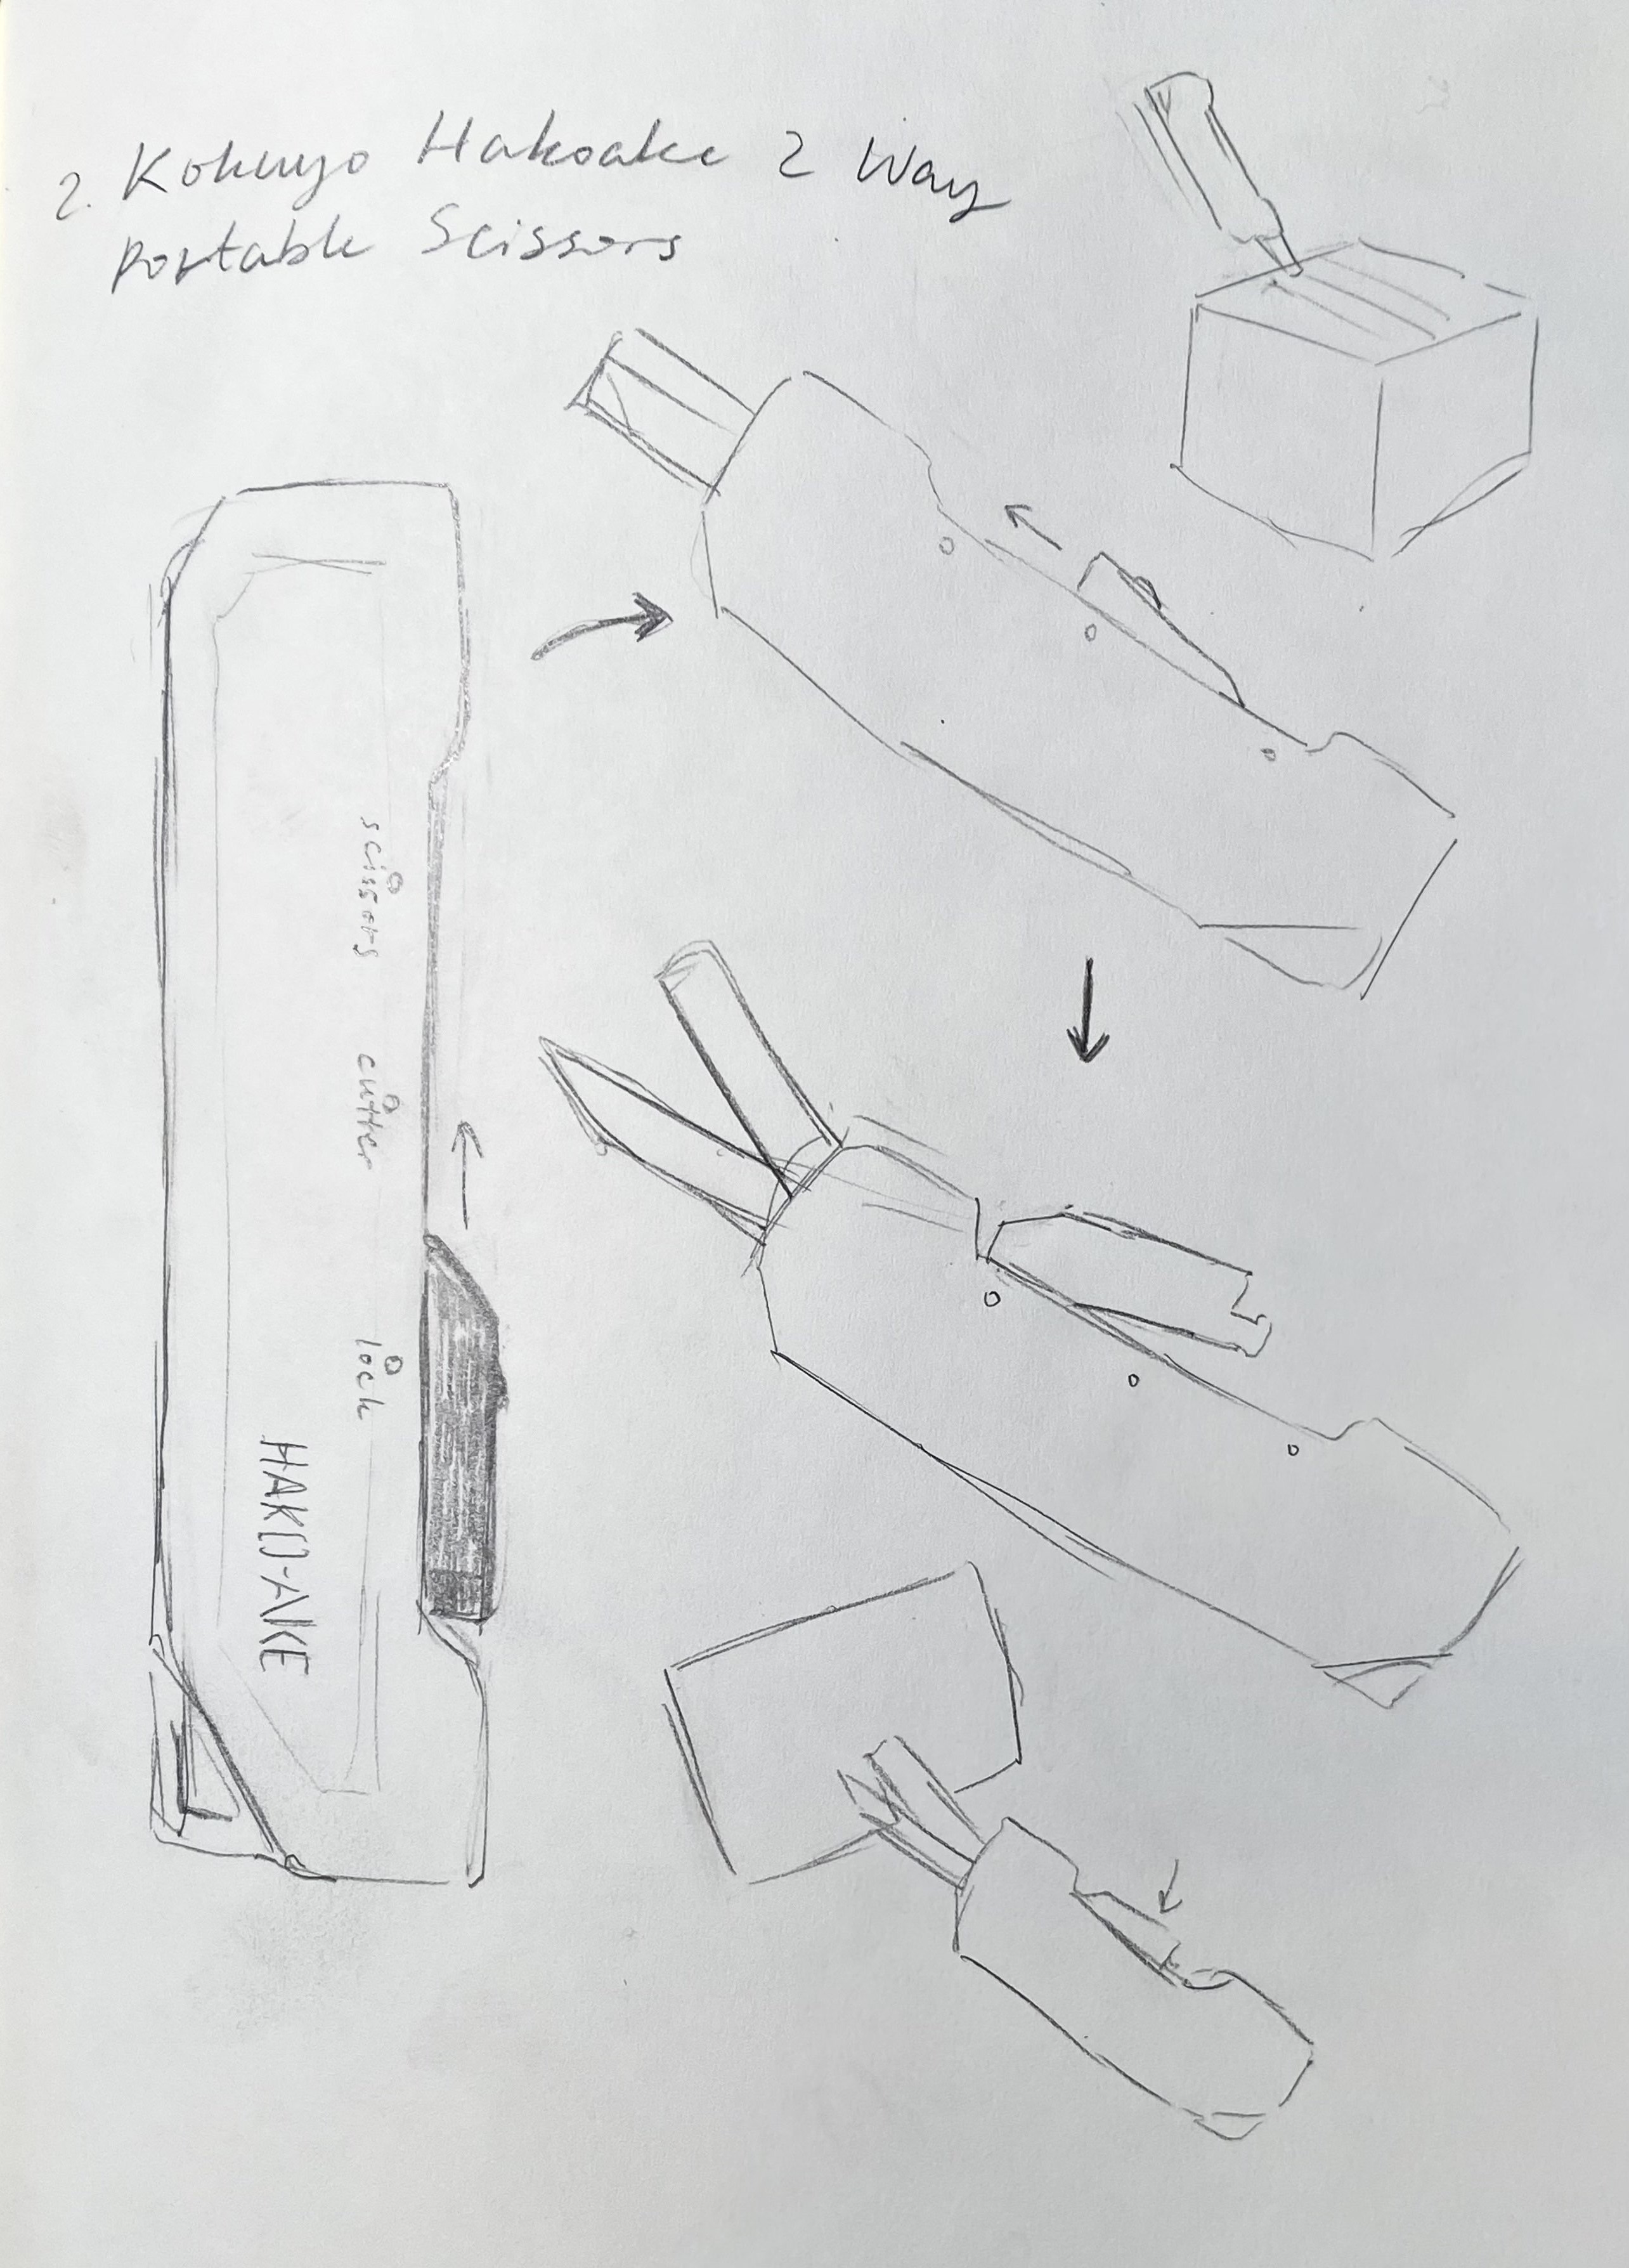 2. Kokuyo Hakoake 2 Way
Portable Scissors
scissors
cutter
lock
HAKO-AKE